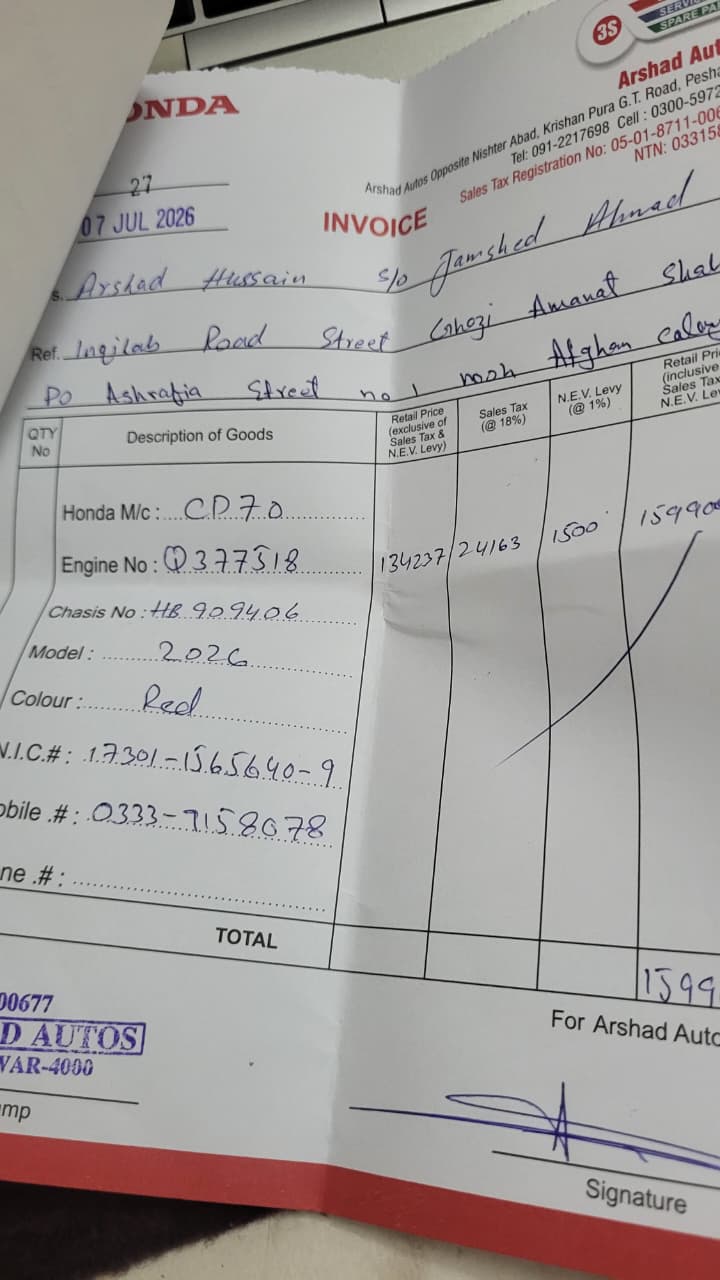 3S
SERVICE
SPARE PA
ONDA
Arshad Aut
Arshad Autos Opposite Nishter Abad, Krishan Pura G.T. Road, Pesha
Tel: 091-2217698 Cell : 0300-5972
Sales Tax Registration No: 05-01-8711-006
NTN: 033158
27
07 JUL 2026
INVOICE
s. Arshad Hussain s/o Jamshed Ahmad
Ref. Inqilab Road Street Ghozi Amanat Shah
PO Ashrafia Street no 1 moh Afghan colony
QTY No
Description of Goods
Retail Price (exclusive of Sales Tax & N.E.V. Levy)
Sales Tax (@ 18%)
N.E.V. Levy (@ 1%)
Retail Pri (inclusive Sales Tax N.E.V. Le
Honda M/c : CD70
Engine No : Q377518 134237 24163 1500 159900
Chasis No : HB 909406
Model : 2026
Colour : Red
N.I.C.# : 17301-1565640-9
obile .# : 0333-9158078
ne .# :
TOTAL 1599
00677
D AUTOS
WAR-4000
For Arshad Auto
mp
Signature